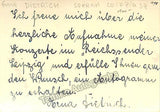 DIETRICH SOPRAN LEIPZIG 37
Ich freue mich über die
herzliche Aufnahme meiner
Konzerte im Reichssender
Leipzig und erfülle Ihnen gern
den Wunsch, ein Autogramm
zu erhalten.